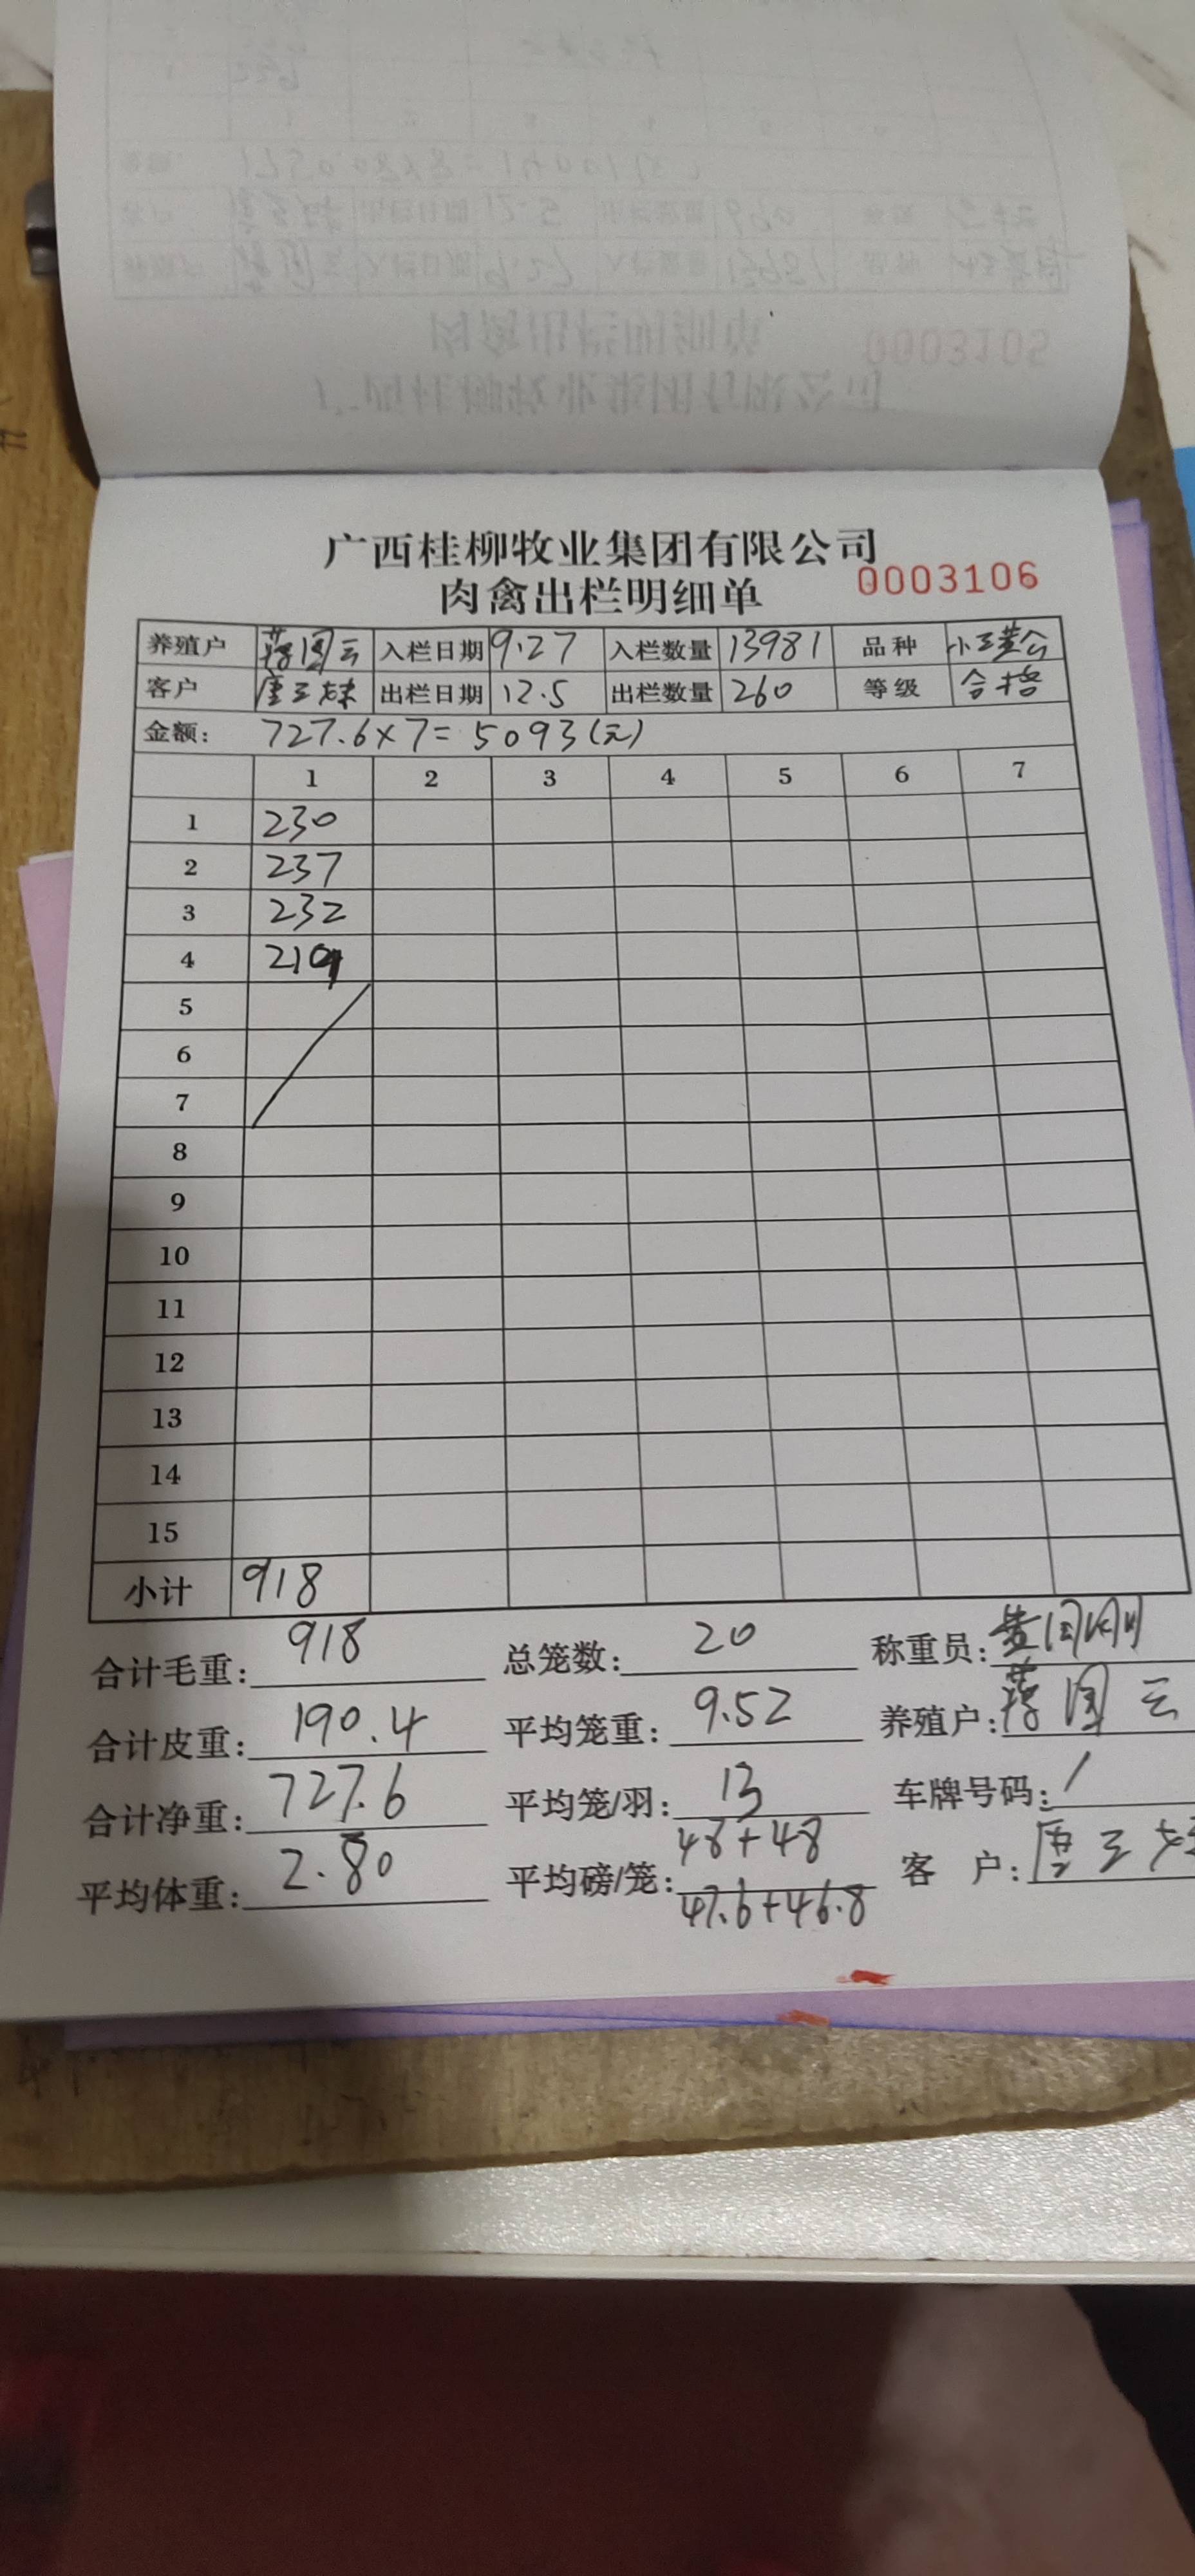 广西桂柳牧业集团有限公司
肉禽出栏明细单 0003106
养殖户 蒋国云 入栏日期 9.27 入栏数量 13981 品种
客户 出栏日期 12.5 出栏数量 260 等级 合格
金额: 727.6×7=5093(元)
1 2 3 4 5 6 7
1 230
2 237
3 232
4 219
5
6
7
8
9
10
11
12
13
14
15
小计 918
合计毛重: 918 总笼数: 20 称重员:
合计皮重: 190.4 平均笼重: 9.52 养殖户: 蒋国云
合计净重: 727.6 平均笼/羽: 13 车牌号码: /
平均体重: 2.80 平均磅/笼: 48+48 客 户:
47.6+46.8